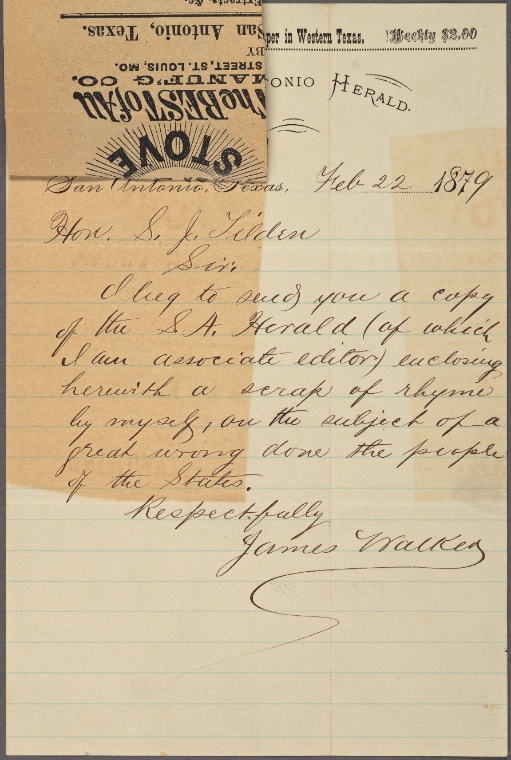 Extracts, &c.
San Antonio, Texas.
BY
STREET, ST. LOUIS, MO.
MANUF'G CO.
The BEST of All
STOVE
per in Western Texas. Weekly $2.00
ONIO HERALD.
San Antonio, Texas, Feb 22 1879
Hon. S. J. Tilden
Sir.
I beg to send you a copy
of the S. A. Herald (of which
I am associate editor) enclosing
herewith a scrap of rhyme
by myself, on the subject of a
great wrong done the people
of the States.
Respectfully
James Walker